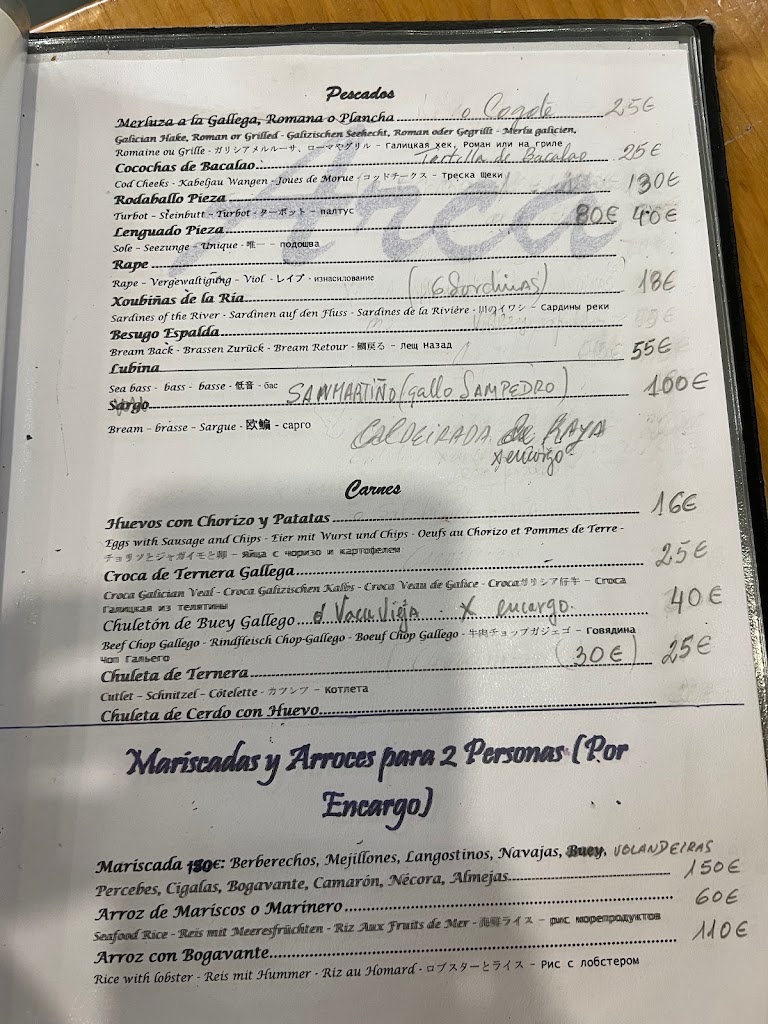 Pescados
Merluza a la Gallega, Romana o Plancha o Cogote 25€
Galician Hake, Roman or Grilled - Galizischen Seehecht, Roman oder Gegrillt - Merlu galicien,
Romaine ou Grille - ガリシアメルルーサ、ローマやグリル - галицкая хек, Роман или на гриле
Cocochas de Bacalao Tortilla de Bacalao 25€
Cod Cheeks - Kabeljau Wangen - Joues de Morue - コッドチークス - Треска щеки
Rodaballo Pieza 130€
Turbot - Steinbutt - Turbot - ターボット - палтус
Lenguado Pieza 80€ 40€
Sole - Seezunge - Unique - 唯一 - подошва
Arca
Rape
Rape - Vergewaltigung - Viol - レイプ - изнасилование
Xoubiñas de la Ria (6 Sardinas) 18€
Sardines of the River - Sardinen auf den Fluss - Sardines de la Rivière - 川のイワシ - Сардины реки
Besugo Espalda
Bream Back - Brassen Zurück - Bream Retour - 鯛戻る - лещ назад
Lubina 55€
Sea bass - bass - basse - 低音 - бас
Sargo SANMARTIÑO (gallo SAMPEDRO) 100€
Bream - brasse - Sargue - 欧鳊 - сарго
CALDEIRADA de RAYA
x encargo
Carnes
Huevos con Chorizo y Patatas 16€
Eggs with Sausage and Chips - Eier mit Wurst und Chips - Oeufs au Chorizo et Pommes de Terre -
チョリソとジャガイモと卵 - яйца с чоризо и картофелем
Croca de Ternera Gallega 25€
Croca Galician Veal - Croca Galizischen Kalbs - Croca Veau de Galice - Crocaガリシア仔牛 - Croca
галицкая из телятины
Chuletón de Buey Gallego d Vaca Vieja . X encargo. 40€
Beef Chop Gallego - Rindfleisch Chop-Gallego - Boeuf Chop Gallego - 牛肉チョップガジェゴ - Говядина
Чоп Гальего
Chuleta de Ternera (30€) 25€
Cutlet - Schnitzel - Côtelette - カツレツ - котлета
Chuleta de Cerdo con Huevo
Mariscadas y Arroces para 2 Personas (Por
Encargo)
Mariscada 150€: Berberechos, Mejillones, Langostinos, Navajas, Buey, VOLANDEIRAS
Percebes, Cigalas, Bogavante, Camarón, Nécora, Almejas 150€
Arroz de Mariscos o Marinero 60€
Seafood Rice - Reis mit Meeresfrüchten - Riz Aux Fruits de Mer - 海鮮ライス - рис морепродуктов
Arroz con Bogavante 110€
Rice with lobster - Reis mit Hummer - Riz au Homard - ロブスターとライス - Рис с лобстером